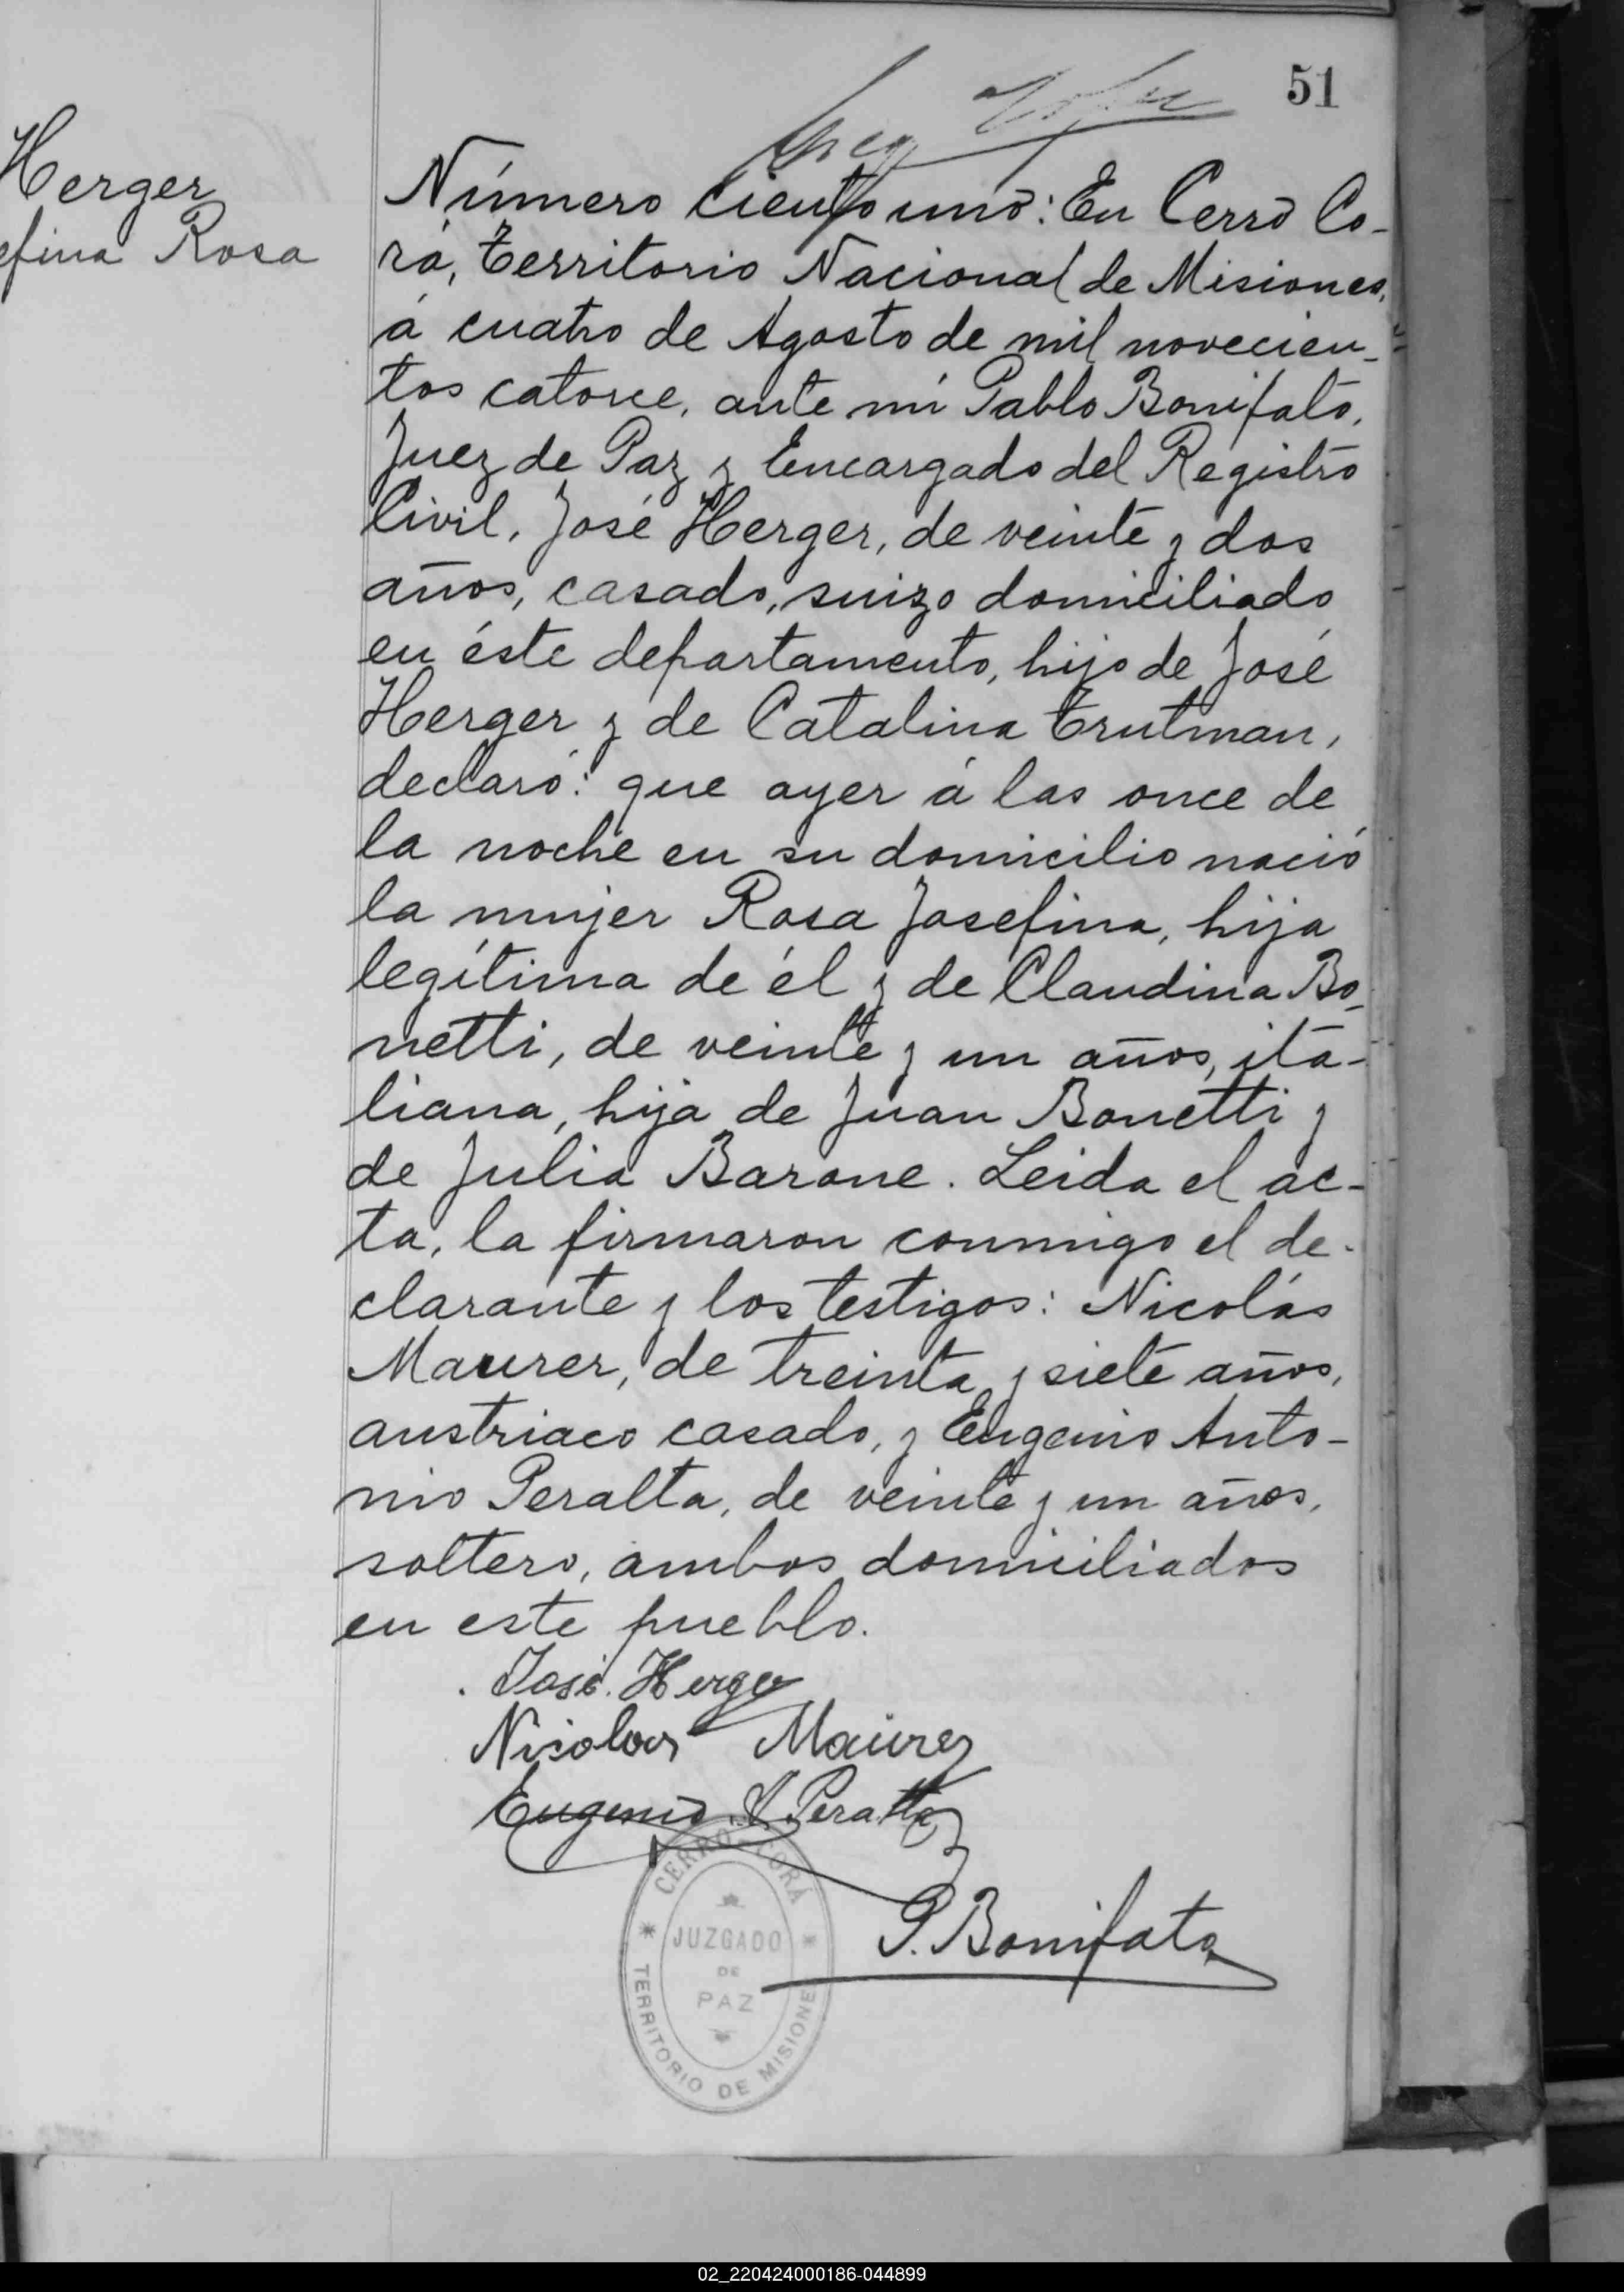 51
Herger
efina Rosa
Número ciento uno: En Cerro Co-
rá, Territorio Nacional de Misiones,
á cuatro de Agosto de mil novecien-
tos catorce, ante mí Pablo Bonifato,
Juez de Paz y Encargado del Registro
Civil, José Herger, de veinte y dos
años, casado, suizo domiciliado
en éste departamento, hijo de José
Herger y de Catalina Trutman,
declaró: que ayer á las once de
la noche en su domicilio nació
la mujer Rosa Josefina, hija
legítima de él y de Claudina Bo-
netti, de veinte y un años, ita-
liana, hija de Juan Bonetti y
de Julia Barone. Leida el ac-
ta, la firmaron conmigo el de-
clarante y los testigos: Nicolás
Maurer, de treinta y siete años,
austriaco casado, y Eugenio Anto-
nio Peralta, de veinte y un años,
soltero, ambos domiciliados
en este pueblo.
José Herger
Nicolas Maurer
Eugenio A. Peralta
P. Bonifato
CERRO-CORÁ
JUZGADO
DE
PAZ
TERRITORIO DE MISIONES
02_220424000186-044899